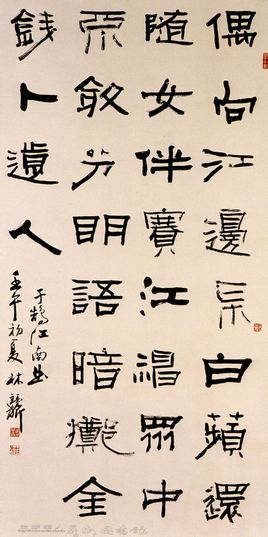 偶向江邊采白蘋還
隨女伴賽江神眾中
不敢分明語暗擲金
錢卜遠人
于鵠江南曲
壬午初夏林